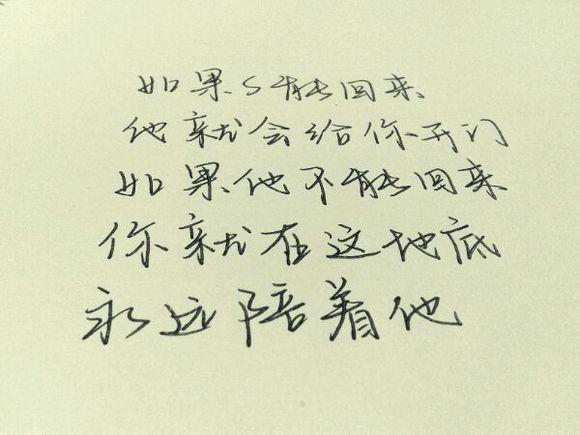 如果S能回来
他就会给你开门
如果他不能回来
你就在这地底
永远陪着他